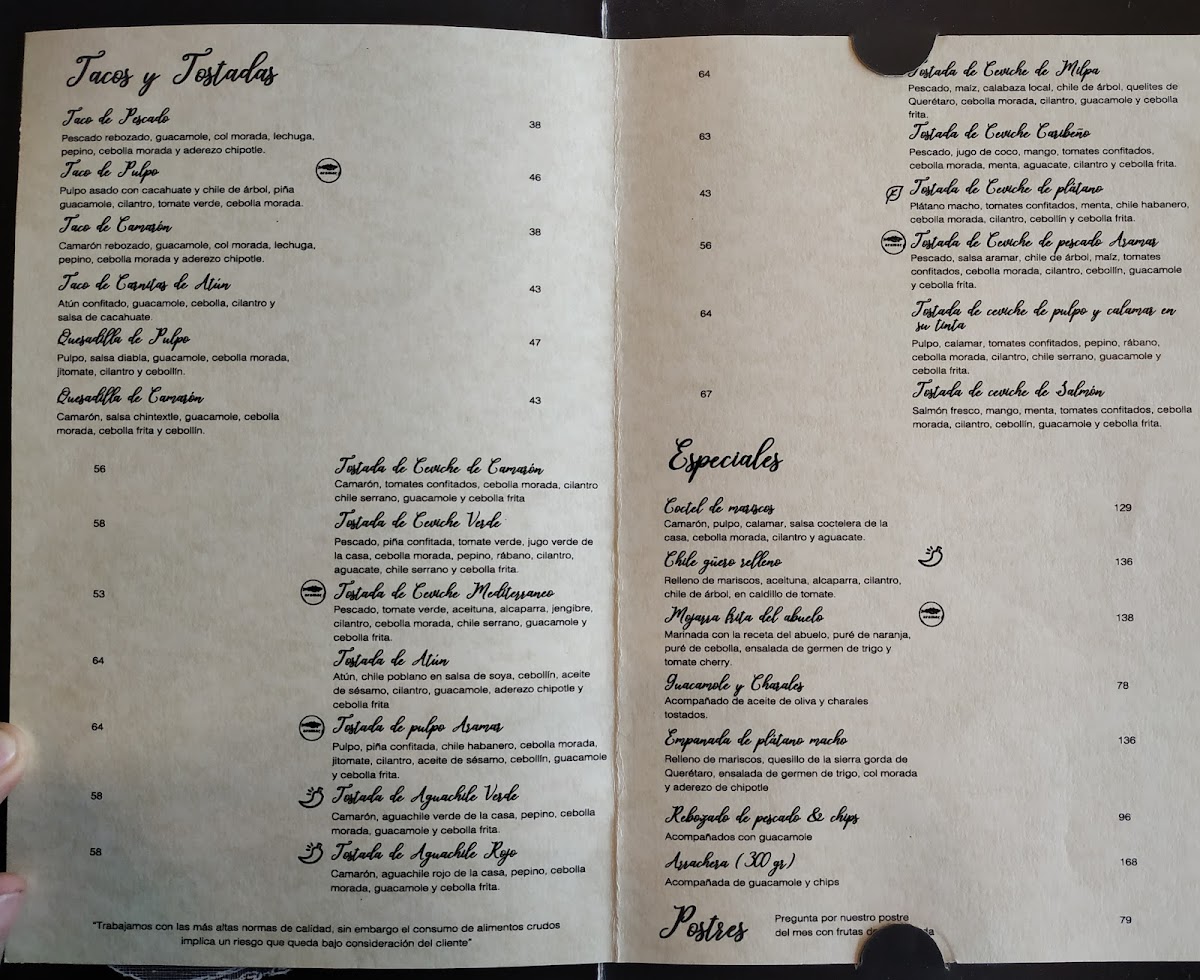 Tacos y Tostadas
Taco de Pescado
38
Pescado rebozado, guacamole, col morada, lechuga,
pepino, cebolla morada y aderezo chipotle.
Taco de Pulpo
46
Pulpo asado con cacahuate y chile de árbol, piña
guacamole, cilantro, tomate verde, cebolla morada.
Taco de Camarón
38
Camarón rebozado, guacamole, col morada, lechuga,
pepino, cebolla morada y aderezo chipotle.
Taco de Carnitas de Atún
43
Atún confitado, guacamole, cebolla, cilantro y
salsa de cacahuate.
Quesadilla de Pulpo
47
Pulpo, salsa diabla, guacamole, cebolla morada,
jitomate, cilantro y cebollín.
Quesadilla de Camarón
43
Camarón, salsa chintextle, guacamole, cebolla
morada, cebolla frita y cebollín.
56
Tostada de Ceviche de Camarón
Camarón, tomates confitados, cebolla morada, cilantro
chile serrano, guacamole y cebolla frita
58
Tostada de Ceviche Verde
Pescado, piña confitada, tomate verde, jugo verde de
la casa, cebolla morada, pepino, rábano, cilantro,
aguacate, chile serrano y cebolla frita.
53
Tostada de Ceviche Mediterraneo
Pescado, tomate verde, aceituna, alcaparra, jengibre,
cilantro, cebolla morada, chile serrano, guacamole y
cebolla frita.
64
Tostada de Atún
Atún, chile poblano en salsa de soya, cebollín, aceite
de sésamo, cilantro, guacamole, aderezo chipotle y
cebolla frita
64
Tostada de pulpo Aramar
Pulpo, piña confitada, chile habanero, cebolla morada,
jitomate, cilantro, aceite de sésamo, cebollín, guacamole
y cebolla frita.
58
Tostada de Aguachile Verde
Camarón, aguachile verde de la casa, pepino, cebolla
morada, guacamole y cebolla frita.
58
Tostada de Aguachile Rojo
Camarón, aguachile rojo de la casa, pepino, cebolla
morada, guacamole y cebolla frita.
"Trabajamos con las más altas normas de calidad, sin embargo el consumo de alimentos crudos
implica un riesgo que queda bajo consideración del cliente"
64
Tostada de Ceviche de Milpa
Pescado, maíz, calabaza local, chile de árbol, quelites de
Querétaro, cebolla morada, cilantro, guacamole y cebolla
frita.
63
Tostada de Ceviche Caribeño
Pescado, jugo de coco, mango, tomates confitados,
cebolla morada, menta, aguacate, cilantro y cebolla frita.
43
Tostada de Ceviche de plátano
Plátano macho, tomates confitados, menta, chile habanero,
cebolla morada, cilantro, cebollín y cebolla frita.
56
Tostada de Ceviche de pescado Aramar
Pescado, salsa aramar, chile de árbol, maíz, tomates
confitados, cebolla morada, cilantro, cebollín, guacamole
y cebolla frita.
64
Tostada de ceviche de pulpo y calamar en
su tinta
Pulpo, calamar, tomates confitados, pepino, rábano,
cebolla morada, cilantro, chile serrano, guacamole y
cebolla frita.
67
Tostada de ceviche de Salmón
Salmón fresco, mango, menta, tomates confitados, cebolla
morada, cilantro, cebollín, guacamole y cebolla frita.
Especiales
Coctel de mariscos
129
Camarón, pulpo, calamar, salsa coctelera de la
casa, cebolla morada, cilantro y aguacate.
Chile güero relleno
136
Relleno de mariscos, aceituna, alcaparra, cilantro,
chile de árbol, en caldillo de tomate.
Mojarra frita del abuelo
138
Marinada con la receta del abuelo, puré de naranja,
puré de cebolla, ensalada de germen de trigo y
tomate cherry.
Guacamole y Charales
78
Acompañado de aceite de oliva y charales
tostados.
Empanada de plátano macho
136
Relleno de mariscos, quesillo de la sierra gorda de
Querétaro, ensalada de germen de trigo, col morada
y aderezo de chipotle
Rebozado de pescado & chips
96
Acompañados con guacamole
Arrachera (300 gr)
168
Acompañada de guacamole y chips
Postres
Pregunta por nuestro postre
79
del mes con frutas